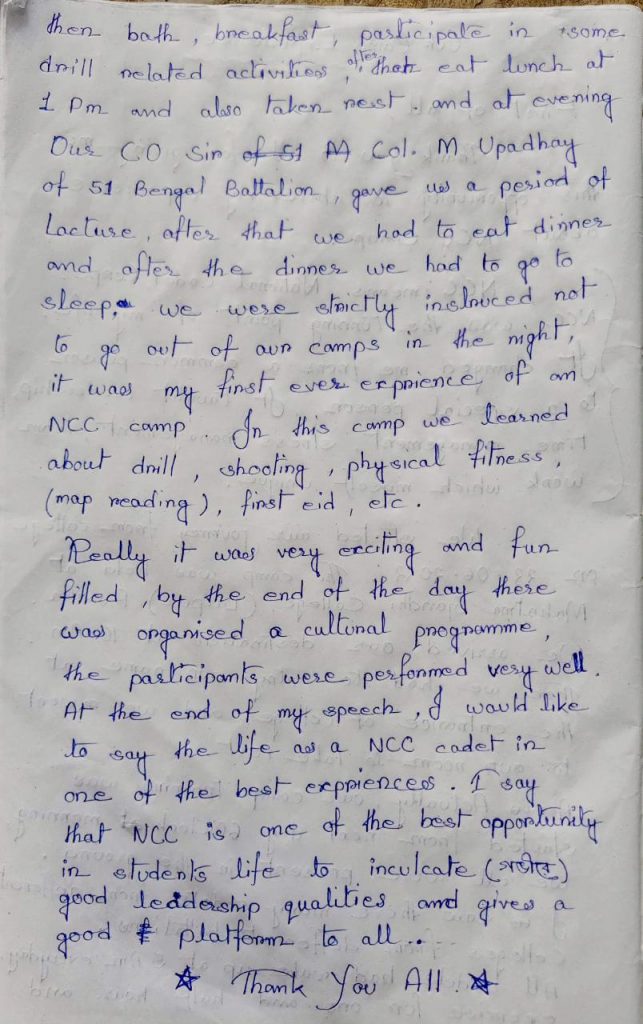 then bath, breakfast, participate in some
drill related activities, after that eat lunch at
1 Pm and also taken rest. and at evening
Our CO Sir of 51 M Col. M Upadhay
of 51 Bengal Battalion, gave us a period of
Lacture, after that we had to eat dinner
and after the dinner we had to go to
sleep, we were strictly insloruced not
to go out of our camps in the night,
it was my first ever expprience, of an
NCC camp. In this camp we learned
about drill, shooting, physical fitness,
(map reading), first eid, etc.
Really it was very exciting and fun
filled, by the end of the day there
was organised a cultural programme,
the participants were performed very well.
At the end of my speech, I would like
to say the life as a NCC cadet in
one of the best exppriences. I say
that NCC is one of the best opportunity
in students life to inculcate ()
good leadership qualities and gives a
good platform to all...
Thank You All.